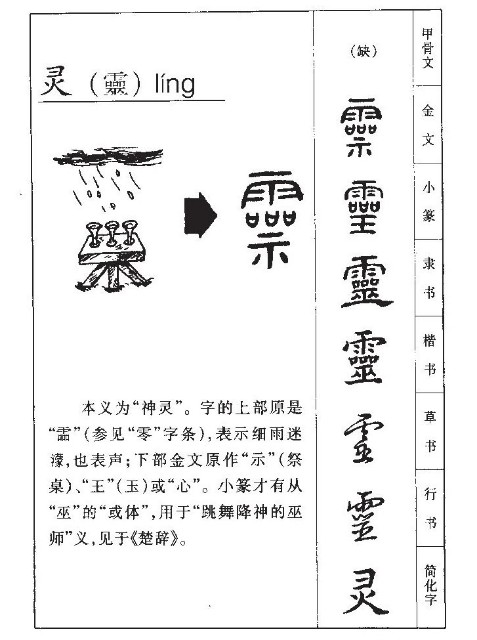 灵（靈）líng
本义为“神灵”。字的上部原是
“霝”(参见“零”字条),表示细雨迷
濛,也表声;下部金文原作“示”(祭
桌)、“王”(玉)或“心”。小篆才有从
“巫”的“或体”,用于“跳舞降神的巫
师”义,见于《楚辞》。
(缺)
甲骨文
金文
小篆
靈
隶书
靈
楷书
草书
行书
灵
简化字